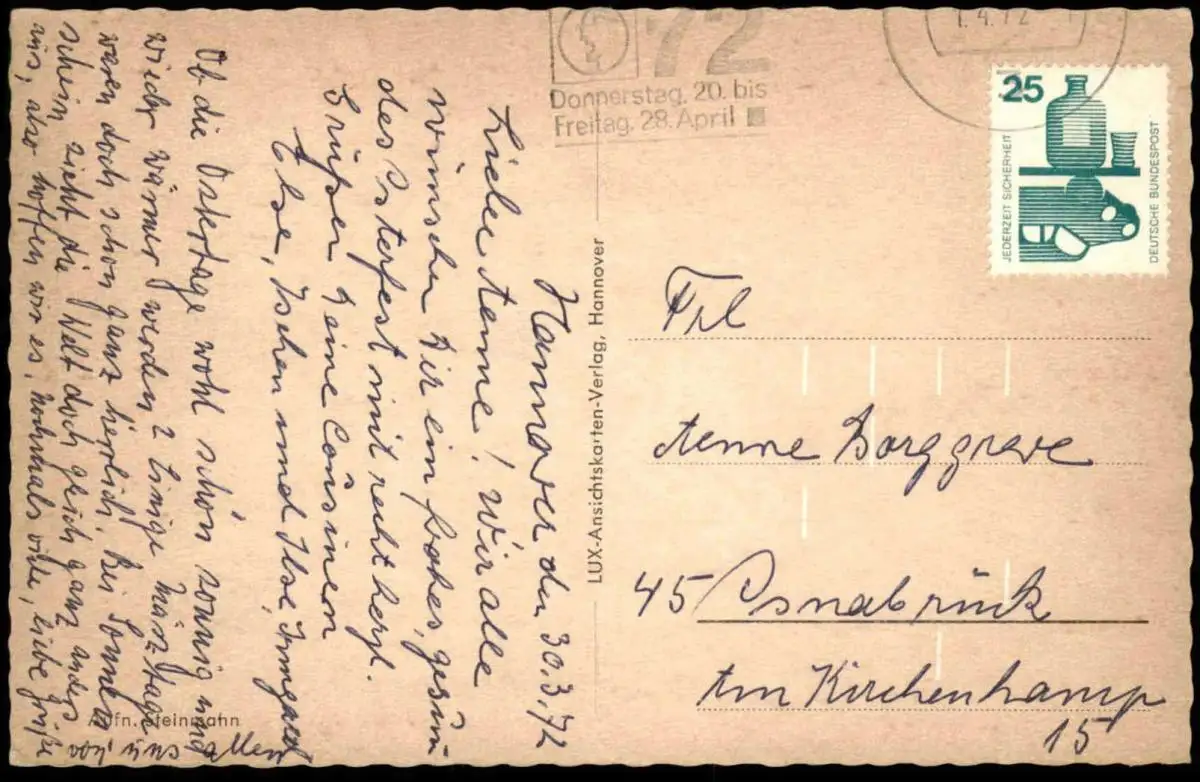 72
Donnerstag, 20. bis
Freitag, 28. April
1.4.72
25
JEDERZEIT SICHERHEIT
DEUTSCHE BUNDESPOST
Hannover den 30.3.72
Liebe Aenne! Wir alle
wünschen Dir ein frohes, gesun
des Osterfest mit recht herzl.
Grüßen Deine Cousinen
Else, Ischen und Ilse, Irmgard
Ob die Ostertage wohl schön sonnig und
wieder wärmer werden? Einige Märztage
waren doch schon ganz herrlich. Bei Sonnen
schein sieht die Welt doch gleich ganz anders
aus, also hoffen wir es, nochmals viele, liebe Grüße
von uns allen
LUX-Ansichtskarten-Verlag, Hannover
Aufn. Steinmann
Frl
Aenne Borggreve
45 Osnabrück
Am Kirchenkamp
15